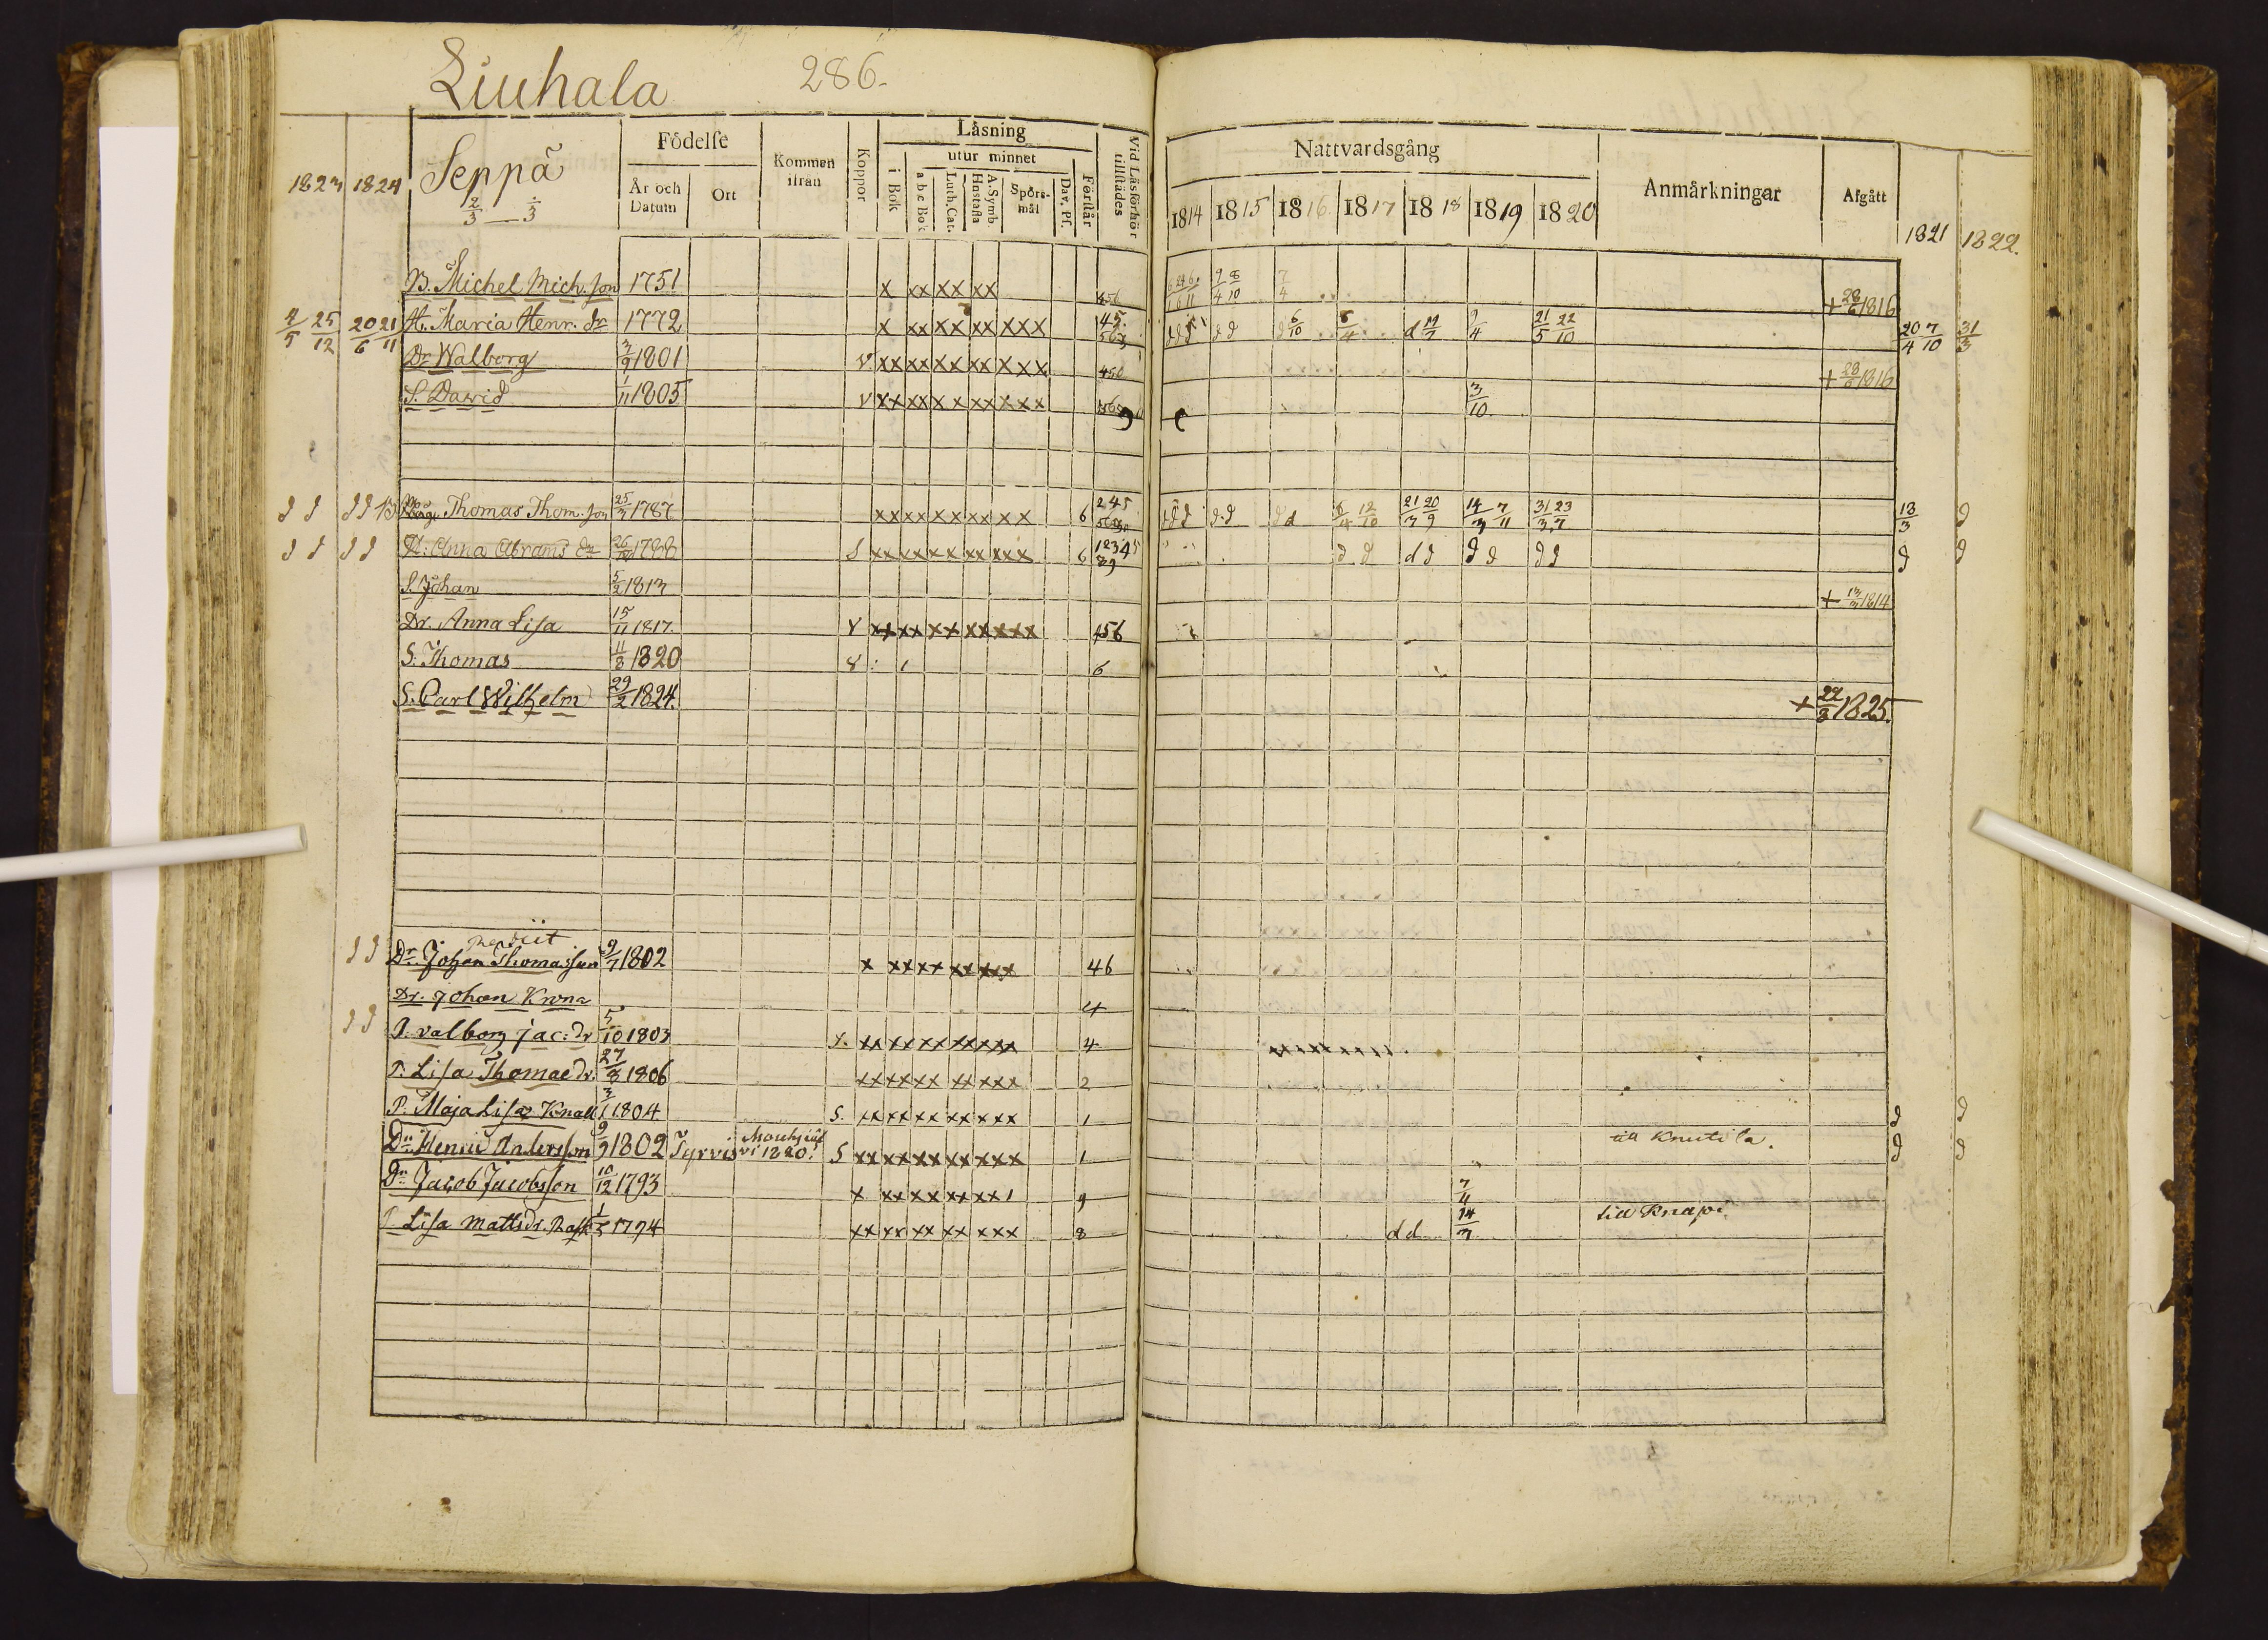 Liuhala 286.
1823 1824 Seppä
2/3 — ÷/3
Födelse
År och Datum
Ort
Kommen ifrån
Koppor
Läsning
i Bok
utur minnet
a b c Bok
Luth. Cat.
A. Symb. Hustafla
Spörs-mål
Dav. Ps.
Förstår
Vid Läsförhör tillstädes
Nattvardsgång
1814 1815 1816 1817 1818 1819 1820
Anmärkningar
Afgått
1821 1822.
B. Michel Mich. son 1751 x xx xx xx 456 9/4 8/10 7/4 + 28/6 1816
4/5 25/12 20/6 21/11 H. Maria Henr. dr 1772 x xx xx xx xxx 45. 567 d d d d d d 6/10 6/4 d 9/4 21/5 22/10 20/4 7/10 31/3
Dr Walborg 3/9 1801 v xx xx xx xx xxx 450 + 28/6 1816
S. David 1/11 1805 v xx xx xx xx xxx 3/10.
d d d d B Thomas Thom. son 25/3 1787 xx xx xx xx xx 6 245 d d d d d d d 6/4 12/10 21/3 20/9 14/3 7/11 31/3 23/7 13/3 d
d d d d H: Anna Abrams dr 26/ 1788 S xx xx xx xx xxx 6 12345 89 d d d d d d d d d d
S. Johan 5/2 1813 + 13/3 1814
Dr. Anna Lisa 15/11 1817. v xx xx xx xx xxx 456
S. Thomas 11/8 1820 8 : 1 6
S. Carl Wilhelm 29/2 1824. + 22/8 1825.
d d Dr. Johan Thomasson 9/7 1802 x xx xx xx xxx 46
Dr. Johan Krona 4
d d P. valborg Jac: dr 5/10 1803 v. xx xx xx xx xxx 4 xx xx xx xxx
P. Lisa Thomae dr. 27/8 1806 xx xx xx xx xxx 2
P. Maja Lisa Knall 3/1 1804 S. xx xx xx xx xxx 1 d d
Dr. Henric Andersson 9/9 1802 Tyrvis 1820. S xx xx xx xx xxx 1 till Knutila. d d
Dr Jacob Jacobsson 10/12 1793 x xx xx xx xx 1 9 7/4
P. Lisa Mattsdr. Rask 1/5 1794 xx xx xx xx xxx 8 d d 14/3 till Knapi.